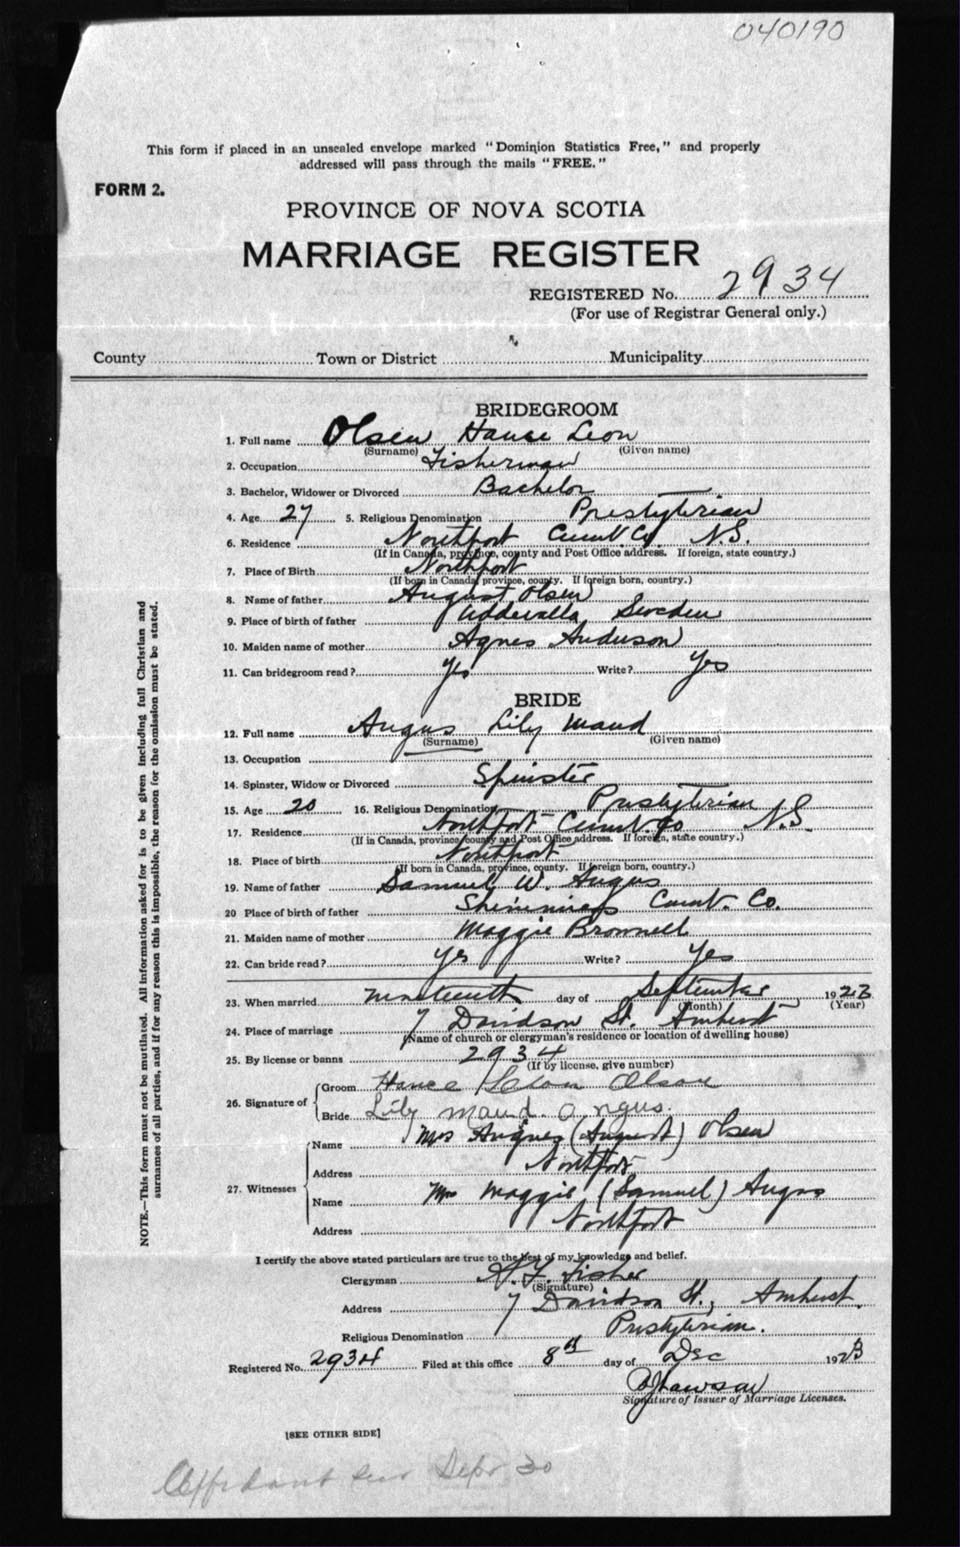 040190
This form if placed in an unsealed envelope marked "Dominion Statistics Free," and properly
addressed will pass through the mails "FREE."
FORM 2.
PROVINCE OF NOVA SCOTIA
MARRIAGE REGISTER
REGISTERED No. 2934
(For use of Registrar General only.)
County Town or District Municipality
BRIDEGROOM
1. Full name Olsen Hance Leon
(Surname) (Given name)
2. Occupation Fisherman
3. Bachelor, Widower or Divorced Bachelor
4. Age 27 5. Religious Denomination Presbyterian
6. Residence Northport Cumb. Co. N.S.
(If in Canada, province, county and Post Office address. If foreign, state country.)
7. Place of Birth Northport
(If born in Canada, province, county. If foreign born, country.)
8. Name of father August Olsen
9. Place of birth of father Uddevalla Sweden
10. Maiden name of mother Agnes Anderson
11. Can bridegroom read? Yes Write? Yes
BRIDE
12. Full name Angus Lily Maud
(Surname) (Given name)
13. Occupation
14. Spinster, Widow or Divorced Spinster
15. Age 20 16. Religious Denomination Presbyterian
17. Residence Northport Cumb. Co N.S.
(If in Canada, province, county and Post Office address. If foreign, state country.)
18. Place of birth Northport
(If born in Canada, province, county. If foreign born, country.)
19. Name of father Samuel W. Angus
20 Place of birth of father Cumb. Co.
21. Maiden name of mother Maggie Brownell
22. Can bride read? Yes Write? Yes
23. When married Nineteenth day of September 1923
(Month) (Year)
24. Place of marriage 7 Davidson St. Amherst
(Name of church or clergyman's residence or location of dwelling house)
25. By license or banns 2934
(If by license, give number)
26. Signature of Groom Hance Leon Olsen
Bride Lily Maud Angus.
Name Mrs (August) Olsen
Address Northport
27. Witnesses
Name Mrs Maggie (Samuel) Angus
Address Northport
I certify the above stated particulars are true to the best of my knowledge and belief.
Clergyman Fisher
(Signature)
Address 7 Davidson St., Amherst.
Religious Denomination Presbyterian.
Registered No. 2934 Filed at this office 8th day of Dec 1923
Signature of Issuer of Marriage Licenses.
[SEE OTHER SIDE]
30
NOTE.—This form must not be mutilated. All information asked for is to be given including full Christian and
surnames of all parties, and if for any reason this is impossible, the reason for the omission must be stated.